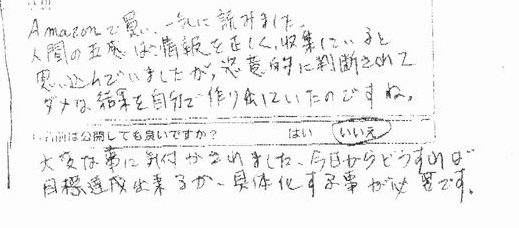 Amazonで買い、一気に読みました。
人間の五感は情報を正しく収集していると
思い込んでいましたが、恣意的に判断されて
ダメな結果を自分で作り出していたのですね。
名前は公開しても良いですか? はい いいえ
大変な事に気付かされました。今日からどうすれば
目標達成出来るか、具体化する事が必要です。